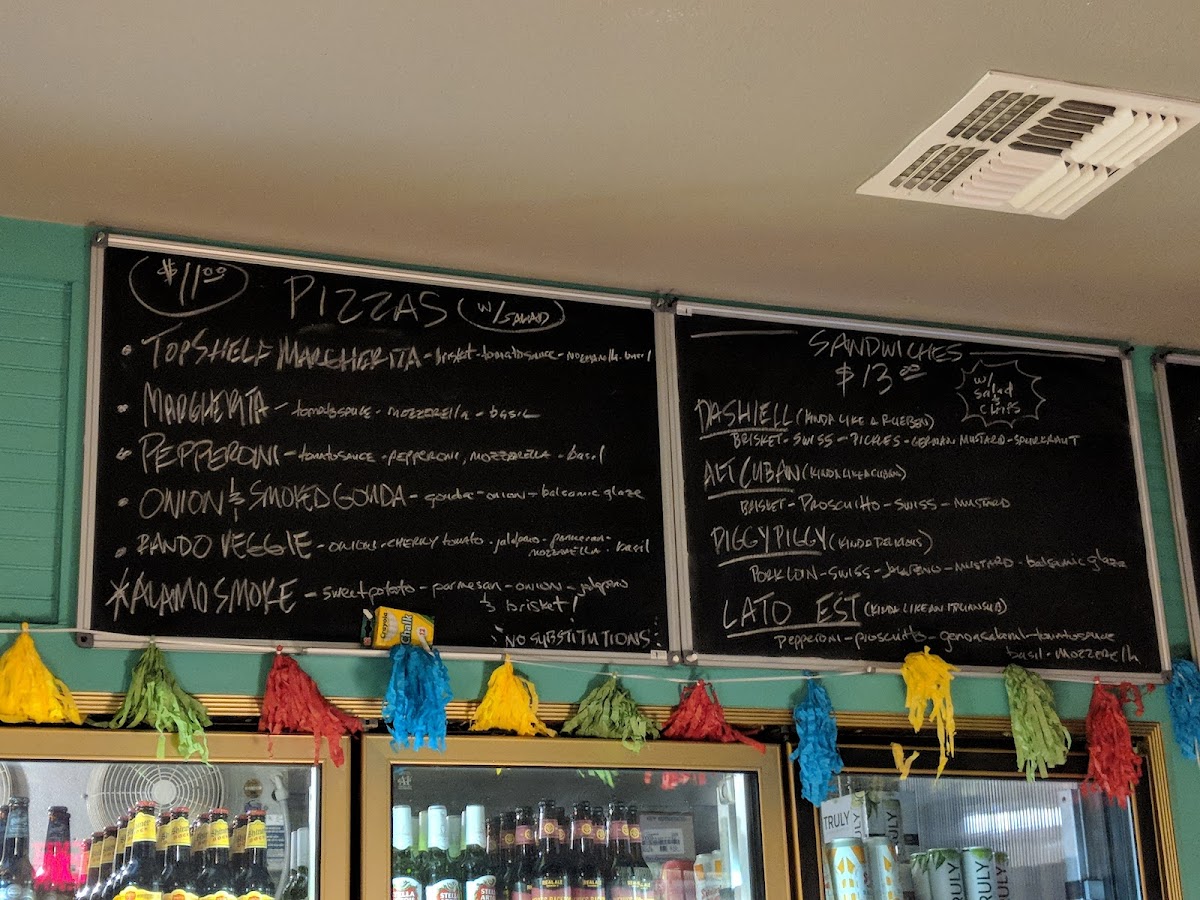 $11.00
PIZZAS (W/SALAD)
TOPSHELF MARGHERITA - brisket - tomatosauce - mozzarella - basil
MARGHERITA - tomatosauce - mozzerella - basil
PEPPERONI - tomatosauce - pepperoni, mozzarella - basil
ONION & SMOKED GOUDA - gouda - onion - balsamic glaze
RANDO VEGGIE - onions - cherry tomato - jalapeno - parmesan -
mozzarella - basil
*ALAMO SMOKE - sweet potato - parmesan - onion - jalapeno
& brisket!
NO SUBSTITUTIONS
SANDWICHES
$13.00
w/
Salad
&
CHIPS
DASHIELL (KINDA LIKE A RUEBEN)
BRISKET - SWISS - PICKLES - GERMAN MUSTARD - SAUERKRAUT
ALT CUBAN (KINDA LIKE A CUBAN)
BRISKET - PROSCUITTO - SWISS - MUSTARD
PIGGY PIGGY (KINDA DELICIOUS)
PORK LOIN - SWISS - JALAPENO - MUSTARD - balsamic glaze
LATO EST (KINDA LIKE AN ITALIAN SUB)
pepperoni - proscuitto - genoa salami - tomatosauce
basil - mozzerella
Crayola
Chalk
Shiner
STELLA
STELLA
REAL ALE
TRULY
TRULY
TRULY
TRULY